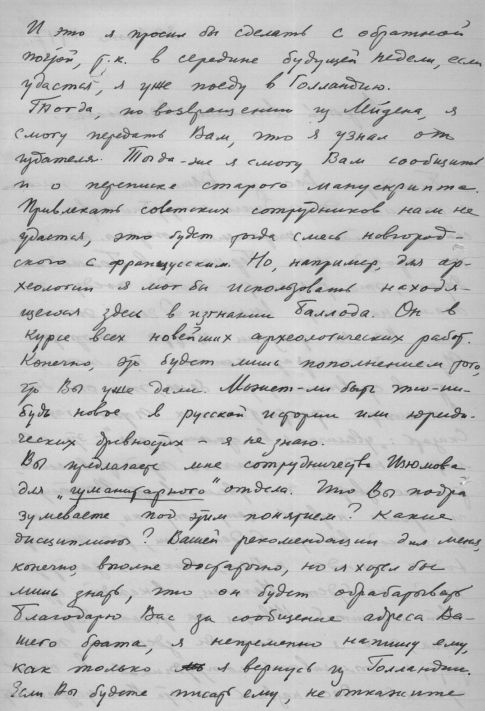 И это я просил бы сделать с обратной
почтой, т.к. в середине будущей недели, если
удастся, я уже поеду в Голландию.
Тогда, по возвращении из Лейдена, я
смогу передать Вам, что я узнал от
издателя. Тогда-же я смогу Вам сообщить
и о переписке старого манускрипта.
Привлекать советских сотрудников нам не
удастся, это будет тогда смесь новгород-
ского с французским. Но, например, для ар-
хеологии я мог бы использовать находя-
щегося здесь в изгнании Баллода. Он в
курсе всех новейших археологических работ.
Конечно, это будет лишь пополнением того,
что Вы уже дали. Может-ли быть что-ни-
будь новое в русской истории или юриди-
ческих древностях – я не знаю.
Вы предлагаете мне сотрудничество Изюмова
для „гуманитарного" отдела. Что Вы подра
зумеваете под этим понятием? Какие
дисциплины? Вашей рекомендации для меня,
конечно, вполне достаточно, но я хотел бы
лишь знать, что он будет обрабатывать
Благодарю Вас за сообщение адреса Ва-
шего брата, я непременно напишу ему,
как только я вернусь из Голландии.
Если Вы будете писать ему, не откажите